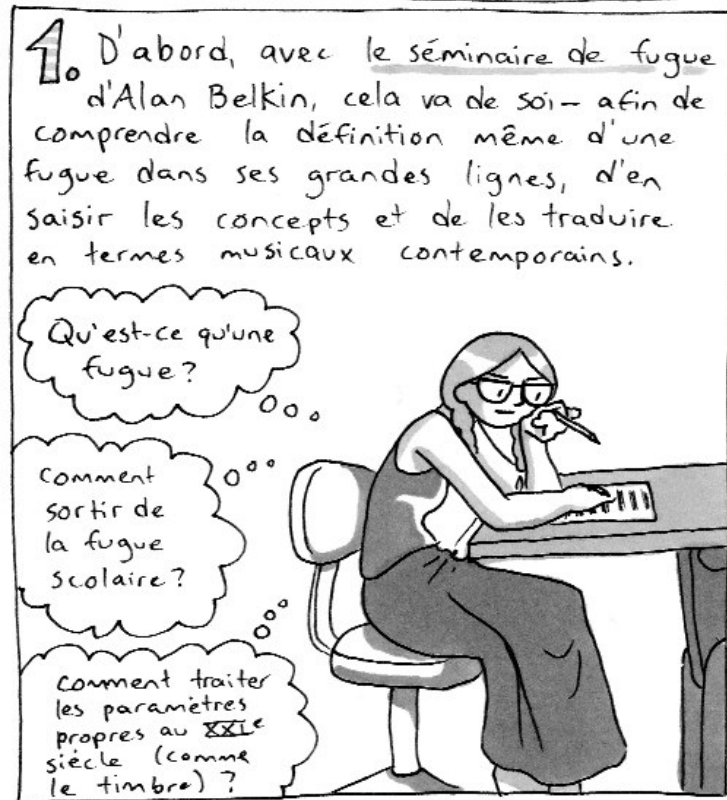 1. D'abord, avec le séminaire de fugue
d'Alan Belkin, cela va de soi – afin de
comprendre la définition même d'une
fugue dans ses grandes lignes, d'en
saisir les concepts et de les traduire
en termes musicaux contemporains.
Qu'est-ce qu'une
fugue?
Comment
sortir de
la fugue
scolaire?
Comment traiter
les paramètres
propres au XXIe
siècle (comme
le timbre)?